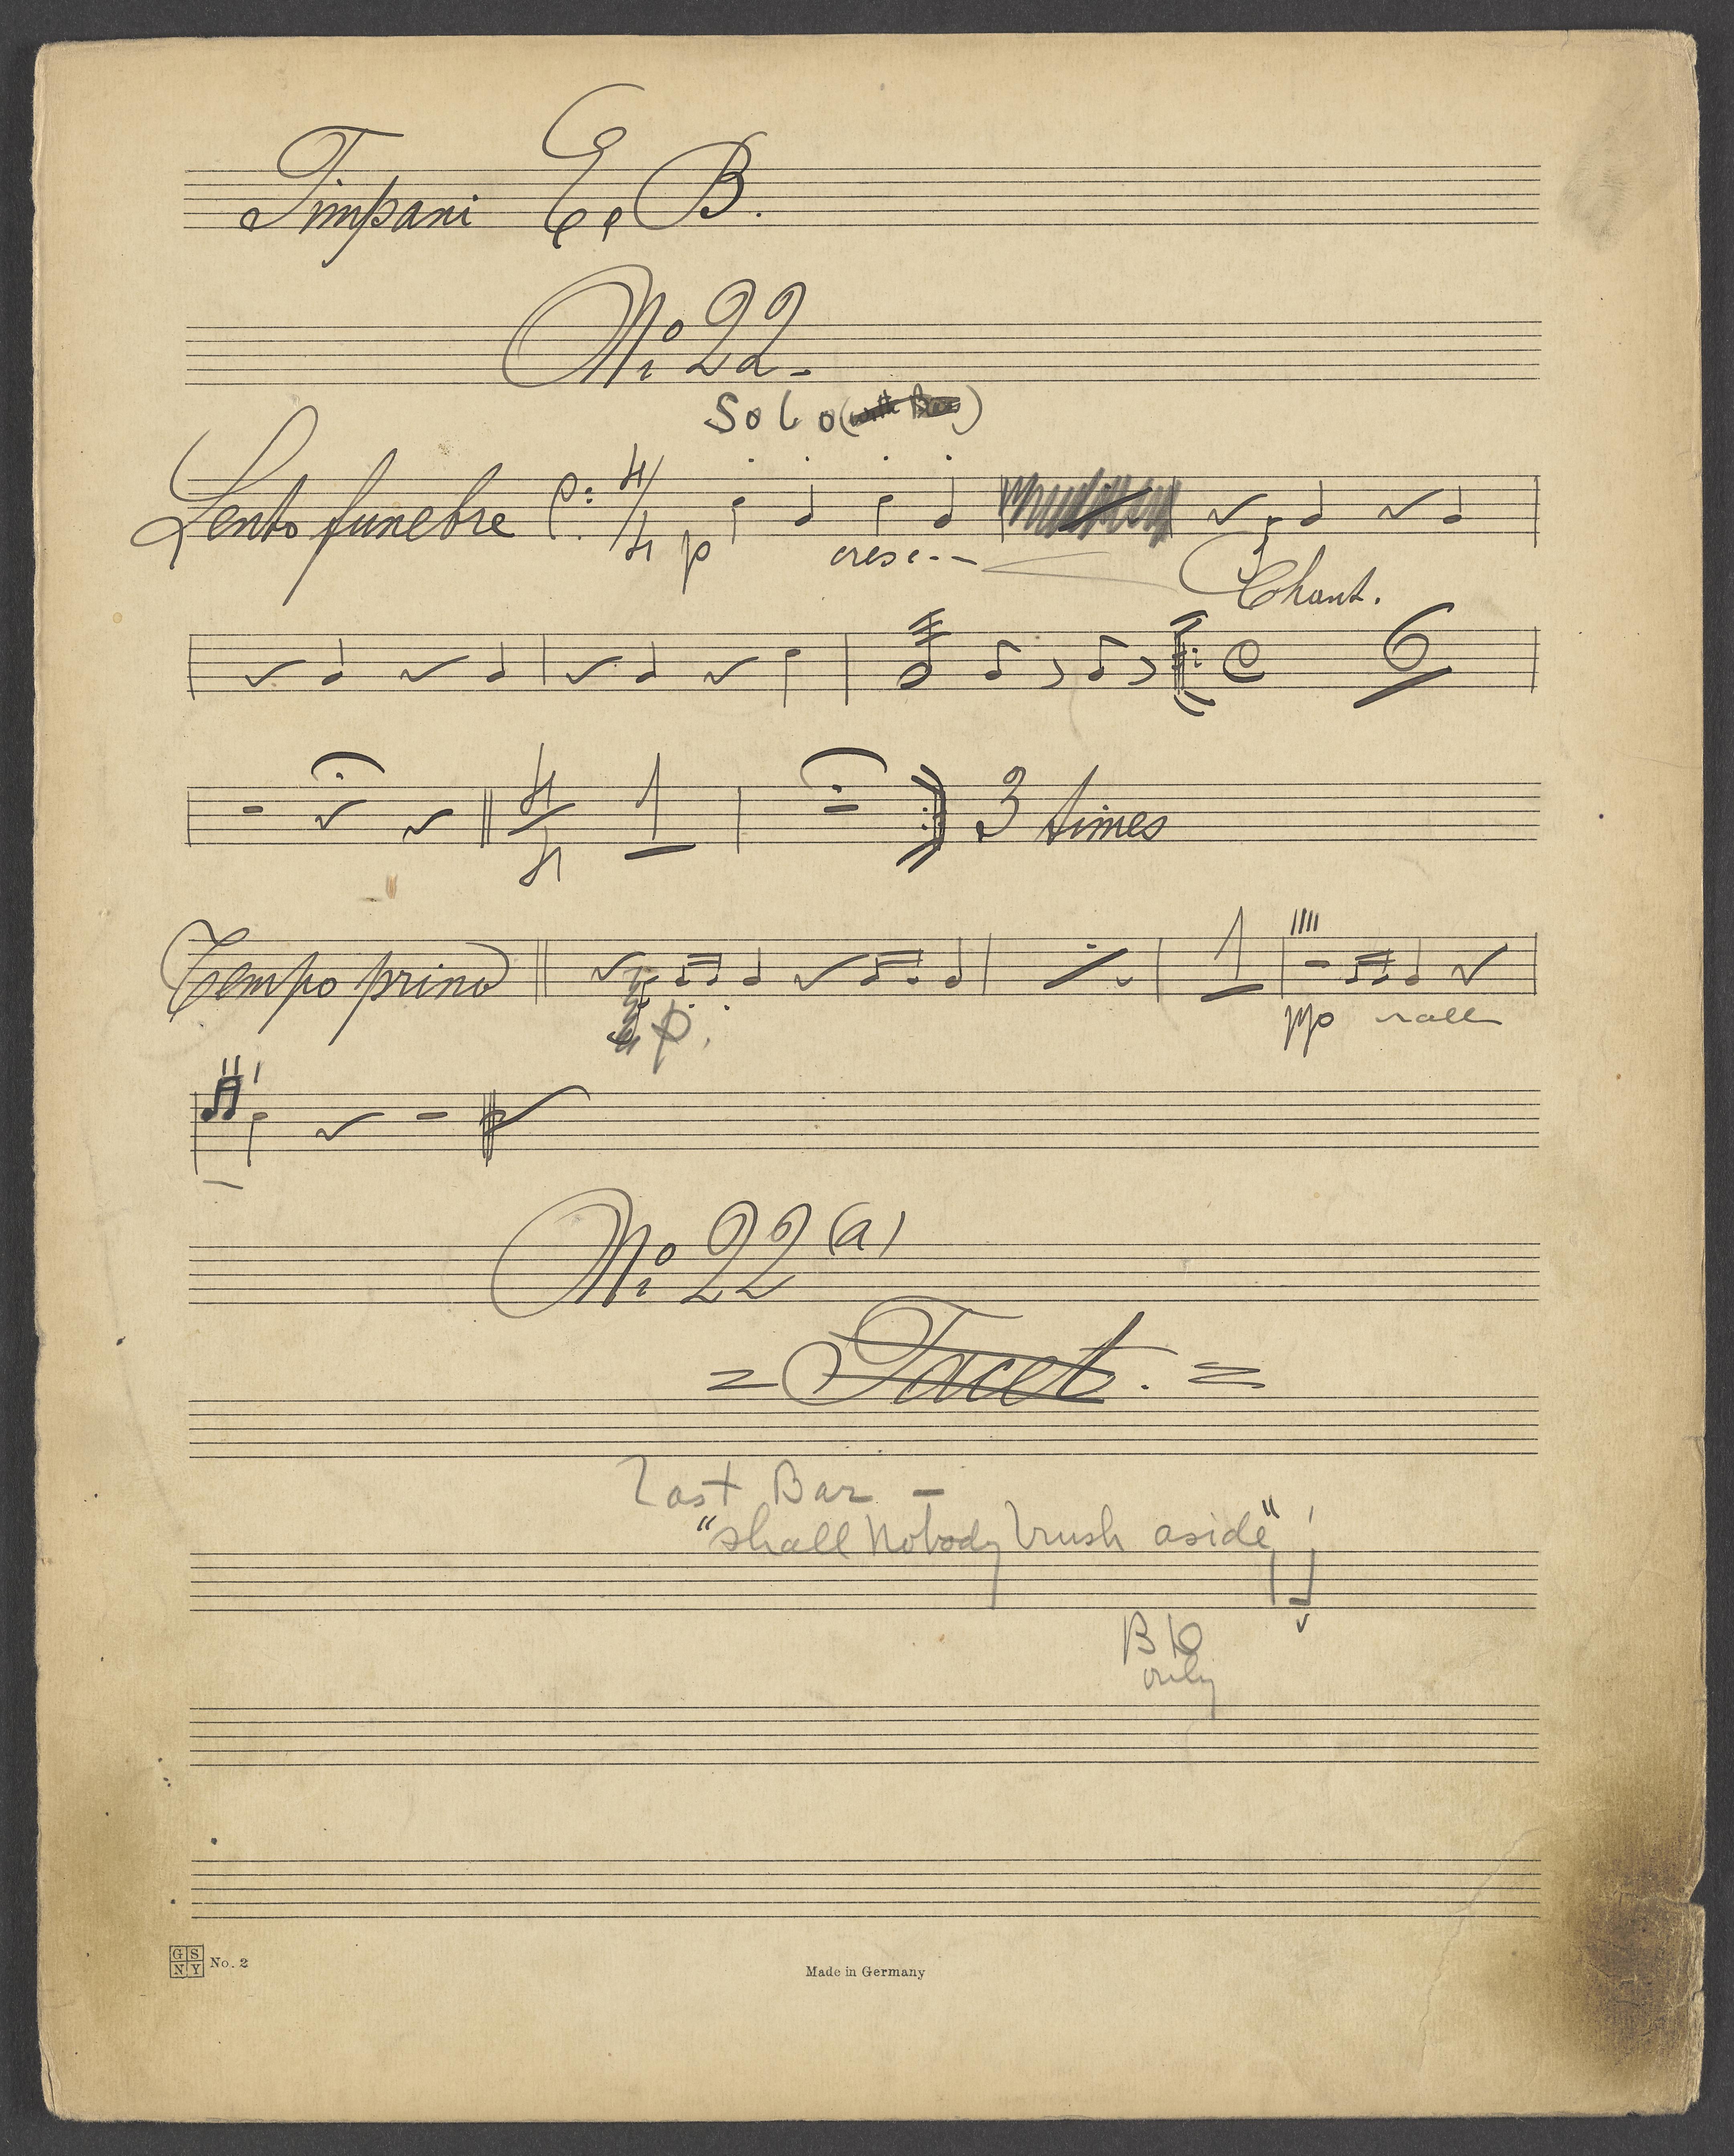 Timpani E, B.
No 22-
Solo (with Bass)
Lento funebre 4/4 p cresc--
Chant.
C 6
4/4 1 3 times
Tempo primo 1
p. pp rall
No 22(a)
= Tacet. =
Last Bar -
"Shall Nobody brush aside"
B D
only
GS
NY No. 2
Made in Germany